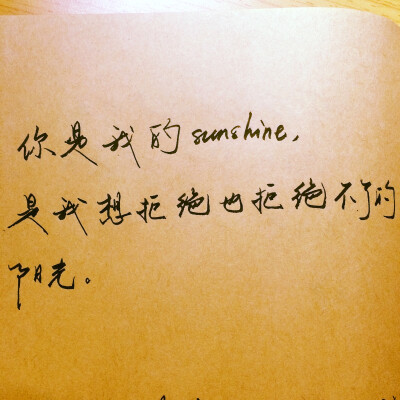 你是我的sunshine,
是我想拒绝也拒绝不了的
阳光。